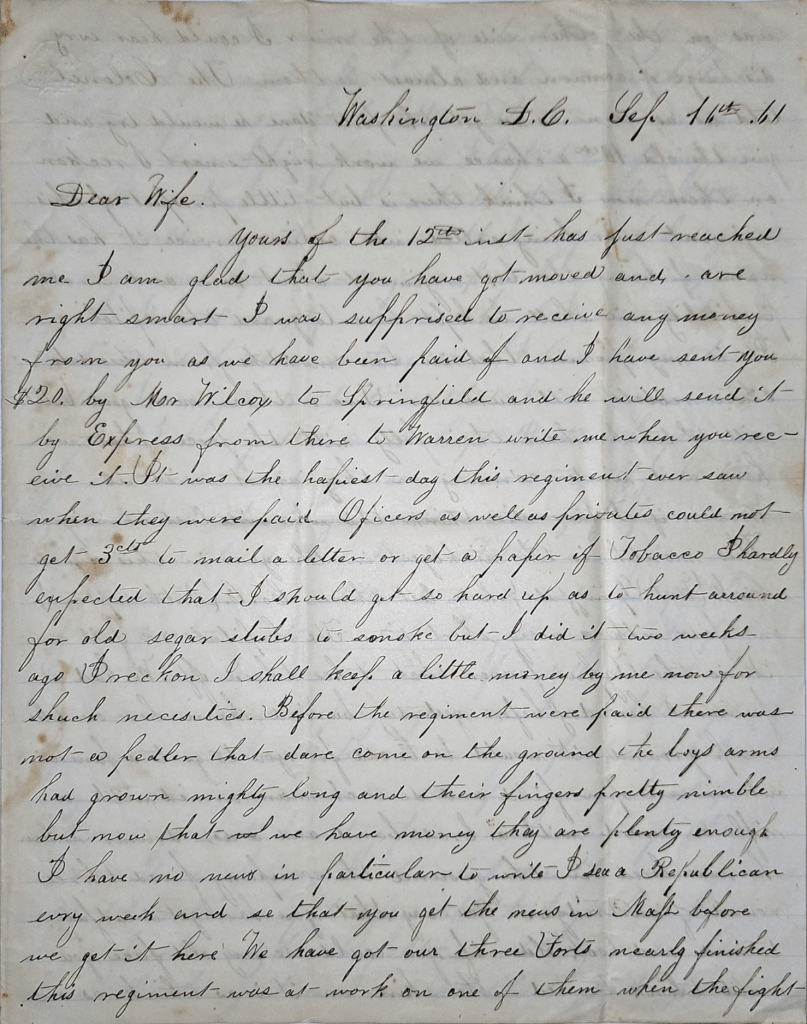 Washington D.C. Sep. 16th .61
Dear Wife.
Yours of the 12th inst has just reached
me I am glad that you have got moved and are
right smart I was supprised to receive any money
from you as we have been paid of and I have sent you
$20. by Mr Wilcox to Springfield and he will send it
by Express from there to Warren write me when you rec-
eive it. It was the hapiest day this regiment ever saw
when they were paid Oficers as well as privates could not
get 3cts to mail a letter or get a paper of Tobacco I hardly
expected that I should get so hard up as to hunt arround
for old segar stubs to smoke but I did it two weeks
ago I reckon I shall keep a little money by me now for
shuch necesities. Before the regiment were paid there was
not a pedler that dare come on the ground the boys arms
had grown mighty long and their fingers pretty nimble
but now that we have money they are plenty enough
I have no news in particular to write I see a Republican
evry week and se that you get the news in Mass before
we get it here We have got our three Forts nearly finished
this regiment was at work on one of them when the fight